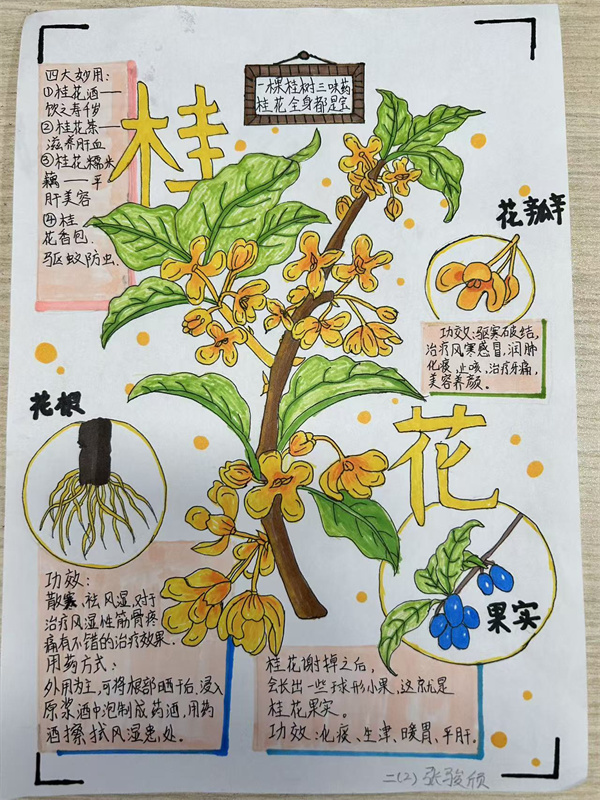 四大妙用:
①桂花酒——
饮之寿千岁
②桂花茶——
滋养肝血
③桂花糯米
藕——平
肝美容
④桂
花香包.
驱蚊防虫.
桂
一棵桂树三味药
桂花全身都是宝
花瓣
功效:驱寒破结,
治疗风寒感冒,润肺
化痰,止咳,治疗牙痛,
美容养颜。
花根
花
功效:
散寒、祛风湿,对于
治疗风湿性筋骨疼
痛有不错的治疗效果.
用药方式:
外用为主,可将根部晒干后,浸入
原浆酒中泡制成药酒,用药
酒擦拭风湿患处.
果实
桂花谢掉之后,
会长出一些球形小果,这就是
桂花果实。
功效:化痰、生津、暖胃、平肝.
二(2) 张骏颀